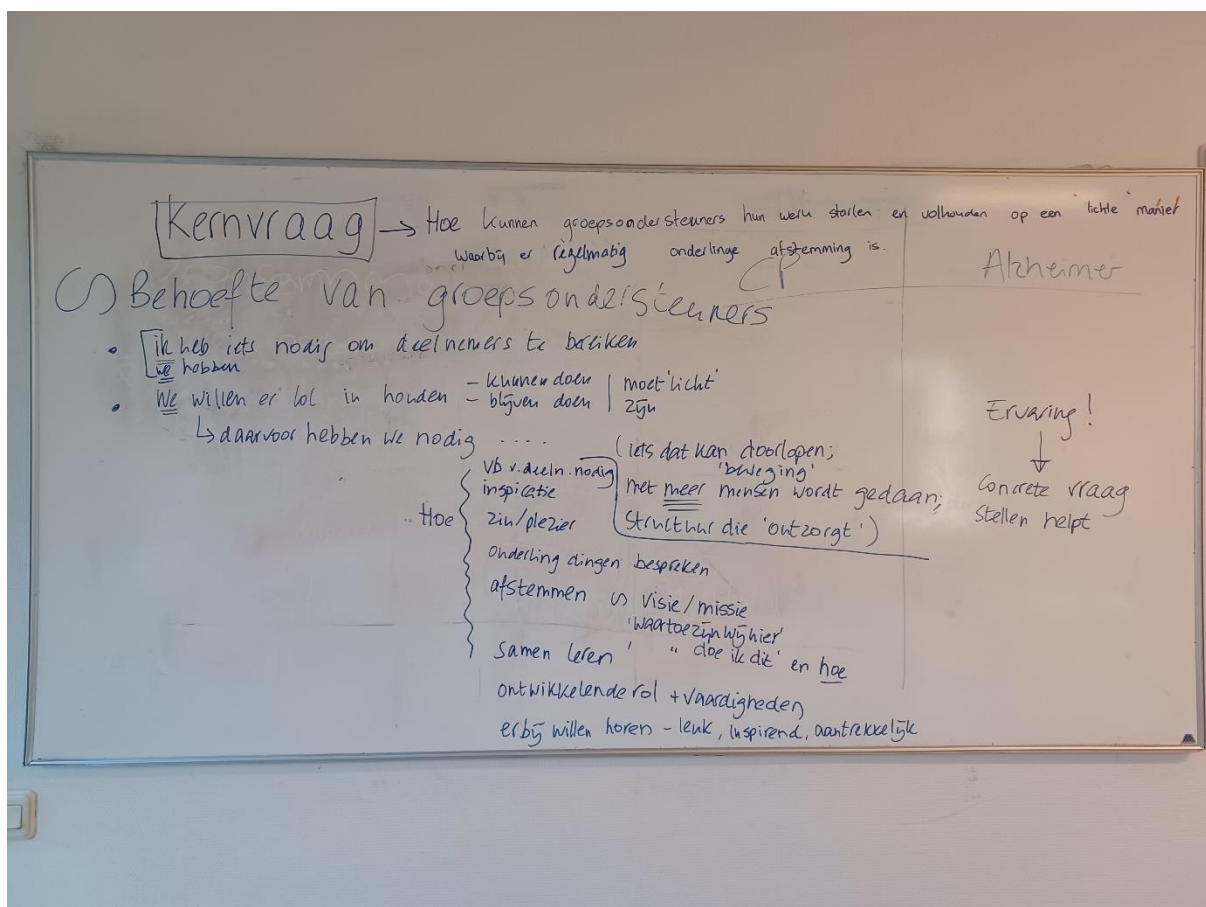 Kernvraag → Hoe kunnen groepsondersteuners hun werk starten en volhouden op een 'lichte' manier
waarbij er regelmatig onderlinge afstemming is.
Behoefte van groepsondersteuners
• ik heb iets nodig om deelnemers te bereiken
we hebben
• We willen er lol in houden - kunnen doen | moet 'licht'
- blijven doen | zijn
↳ daarvoor hebben we nodig ....
(iets dat kan doorlopen;
'beweging'
met meer mensen wordt gedaan;
structuur die 'ontzorgt')
.. Hoe
vb v. deeln. nodig
inspiratie
zin/plezier
onderling dingen bespreken
afstemmen ∽ visie/missie
'waartoe zijn wij hier'
samen leren ' " doe ik dit' en hoe
ontwikkelende rol + vaardigheden
erbij willen horen - leuk, inspirend, aantrekkelijk
Alzheimer
Ervaring!
↓
Concrete vraag
stellen helpt